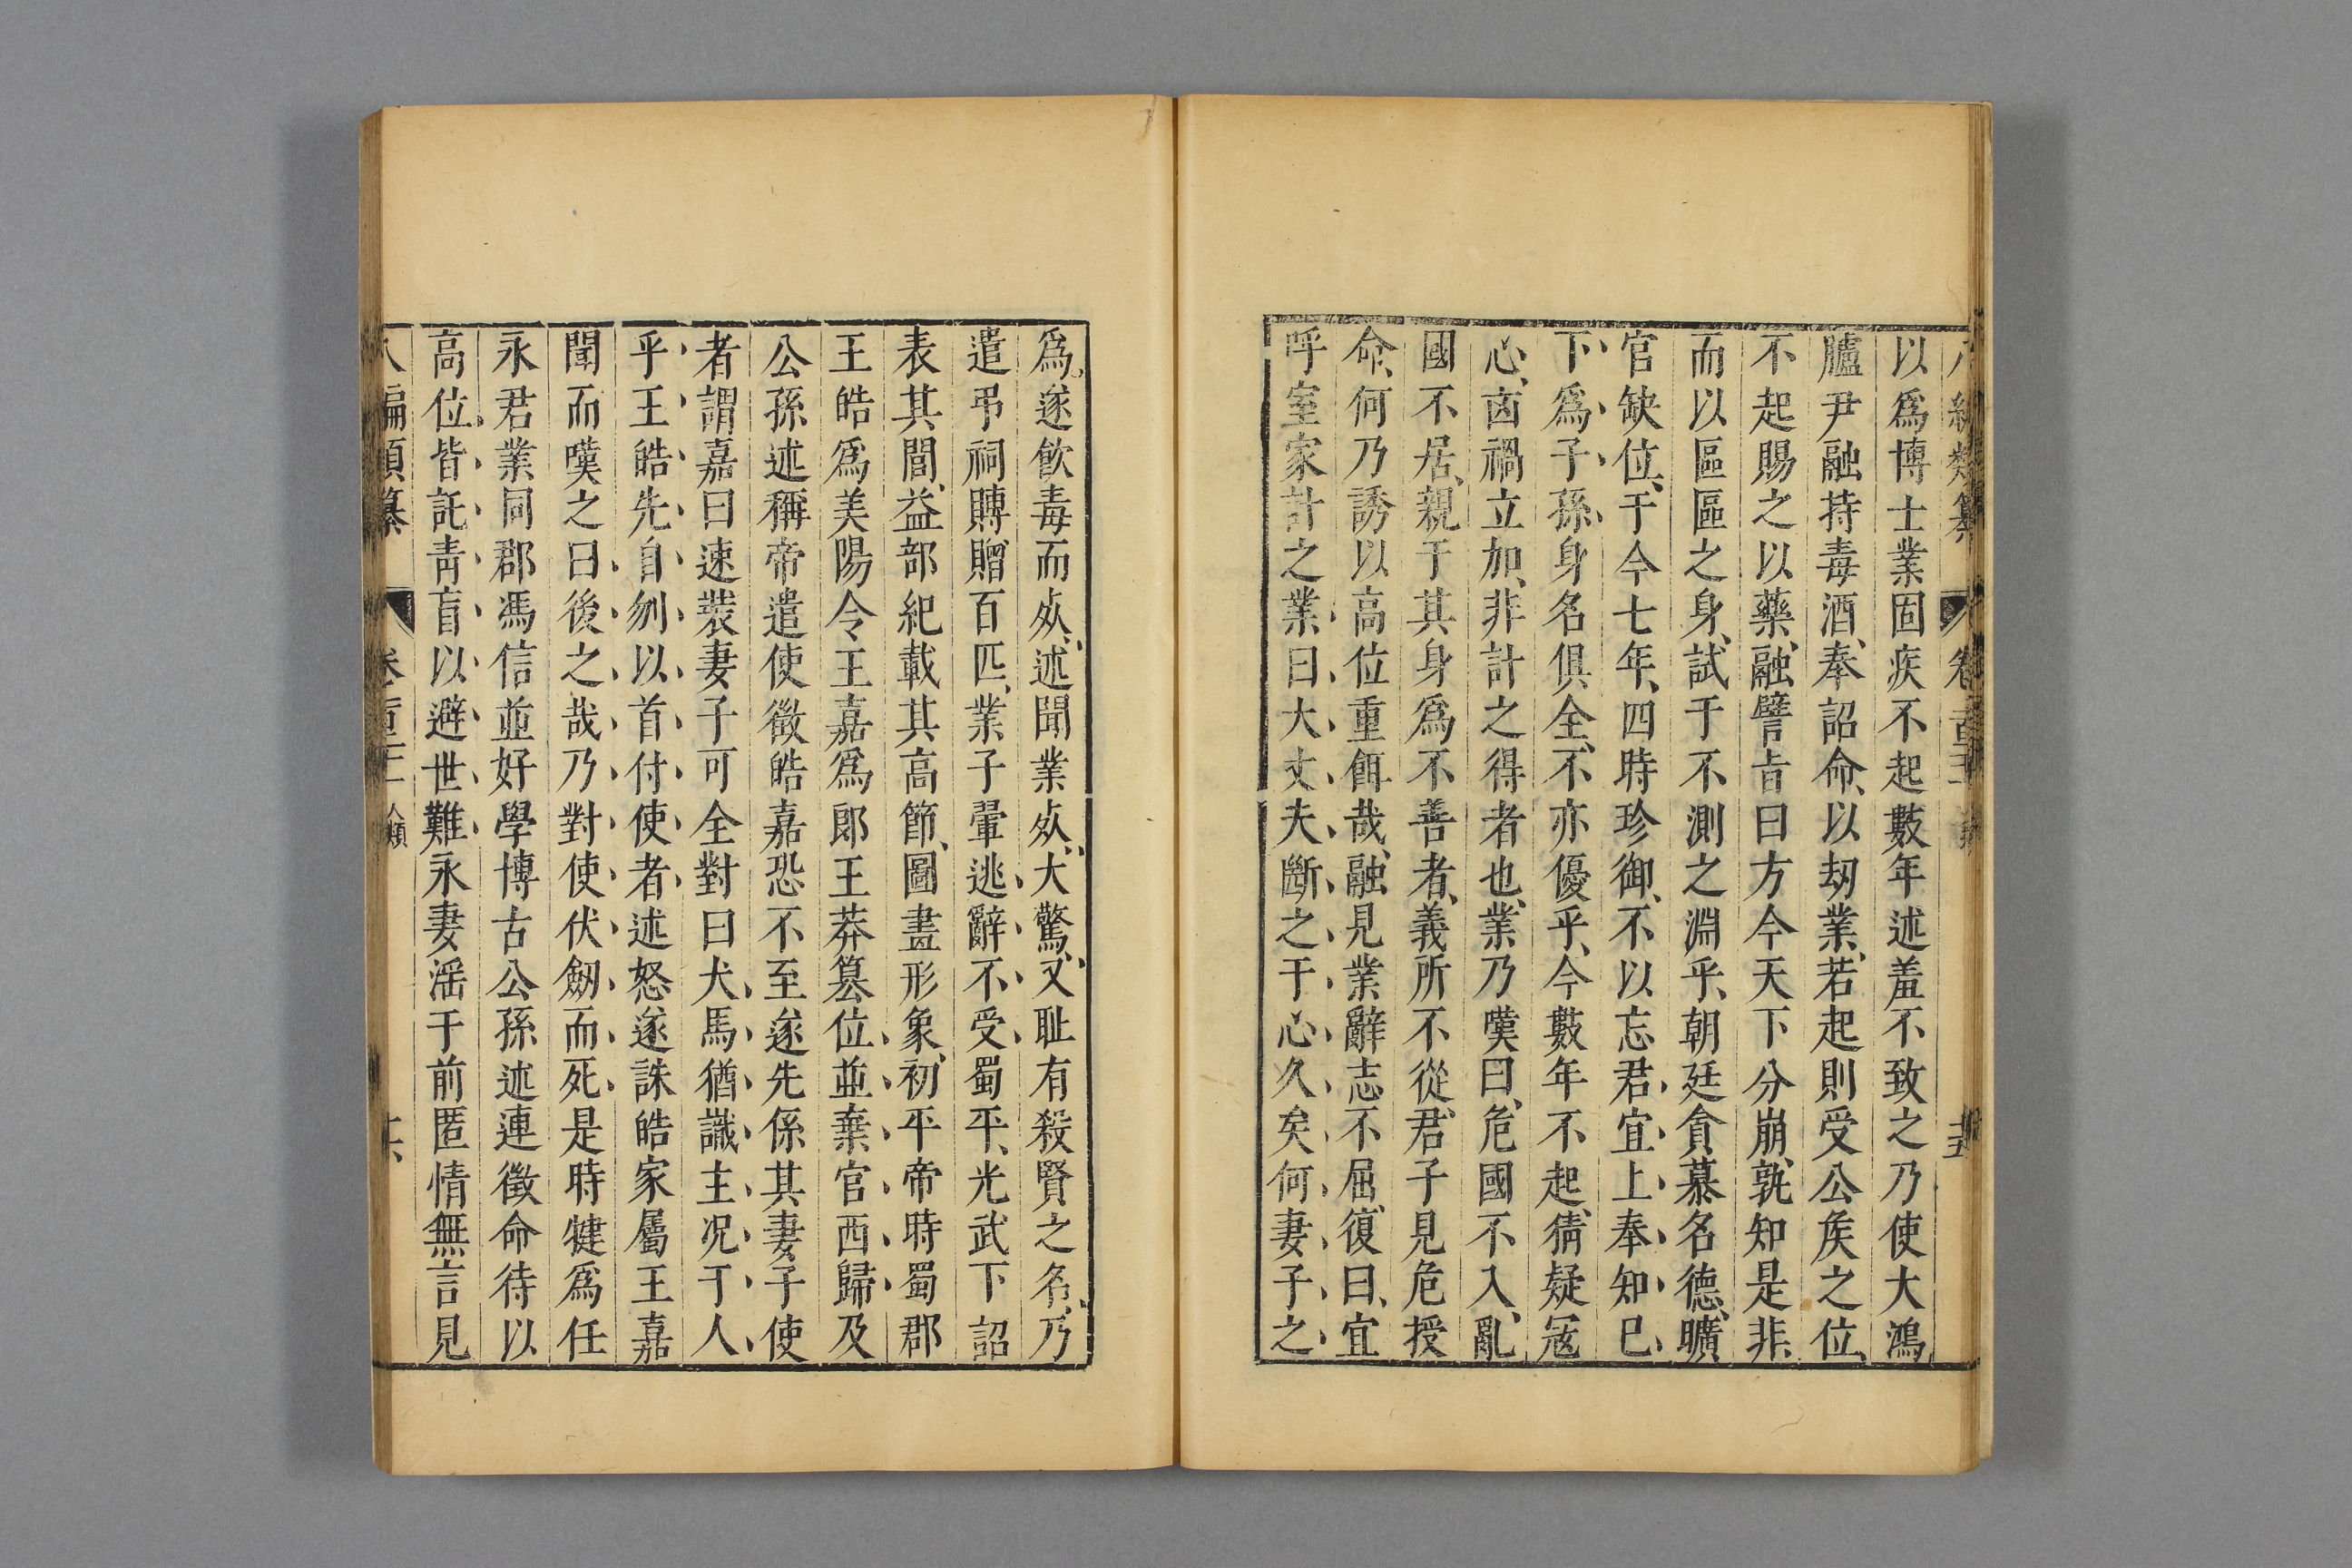 以爲博士業固疾不起數年述羞不致之乃使大鴻
臚尹融持毒酒、奉詔命、以刼業、若起則受公矦之位、
不起賜之以藥、融譬㫖曰方今天下分崩、孰知是非、
而以區區之身、試于不測之淵乎、朝廷貪慕名德、曠
官缺位、于今七年、四時珍御、不以忘君、宜上奉知已
下、爲子孫、身名俱全、不亦優乎、今數年不起、猜疑寇
心、㐫禍立加、非計之得者也、業乃嘆曰、危國不入、亂
國不居、親于其身爲不善者、義所不從、君子見危授
命、何乃誘以高位重餌哉、融見業辭志不屈、復曰、宜
呼室家計之業曰大丈夫斷之于心久矣何妻子之
爲、遂飲毒而㱙、述聞業㱙、大驚、又耻有殺賢之名、乃
遣弔祠賻贈百匹、業子翬逃辭不受、蜀平、光武下詔
表其閭、益部紀載其高節、圖畫形象、初平帝時蜀郡
王皓爲美陽令王嘉爲郎王莽篡位並棄官西歸及
公孫述稱帝遣使徵皓嘉恐不至遂先係其妻子使
者謂嘉曰速裝妻子可全對曰犬馬猶識主况于人
乎王皓先自刎以首付使者述怒遂誅皓家屬王嘉
聞而嘆之曰後之哉乃對使伏劒而死是時犍爲任
永君業同郡馮信並好學博古公孫述連徵命待以
高位皆託靑盲以避世難永妻淫于前匿情無言見
八編類纂 卷一百三十一 人類 十六